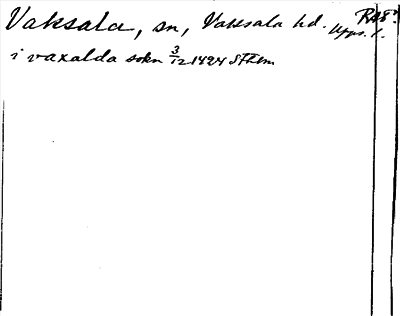 Vaksala, sn, Vaksala hd. Upps. l.
i vaxalda sokn 3/12 1424 Sthlm